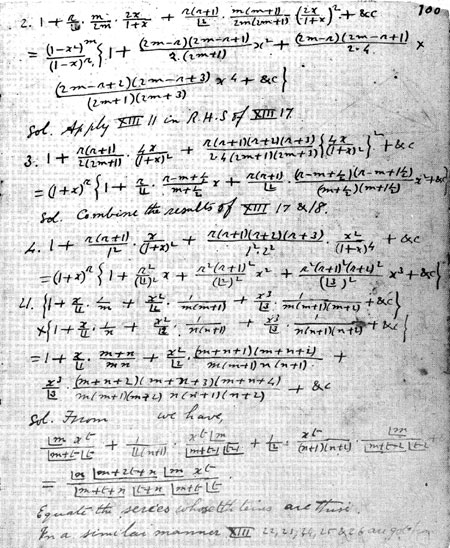 100
2. 1 + r/|1 · m/2m · 2x/(1+x) + r(r+1)/|2 · m(m+1)/2m(2m+1) (2x/(1+x))² + &c
= (1-x²)^m/(1-x)^r { 1 + (2m-r)(2m-r+1)/2·(2m+1) x² + (2m-r)(2m-r+1)/2·4 ×
(2m-r+2)(2m-r+3)/(2m+1)(2m+3) x⁴ + &c }
Sol. Apply XIII 11 in R.H.S of XIII 17.
3. 1 + r(r+1)/2(2m+1) · 4x/(1+x)² + r(r+1)(r+2)(r+3)/2·4(2m+1)(2m+3) {4x/(1+x)²}² + &c
= (1+x)^r { 1 + r/|1 · (r-m+½)/(m+½) x + r(r+1)/|2 · (r-m+½)(r-m+1½)/(m+½)(m+1½) x² + &c }
Sol. Combine the results of XIII 17 & 18.
4. 1 + r(r+1)/1² · x/(1+x)² + r(r+1)(r+2)(r+3)/1²·2² · x²/(1+x)⁴ + &c
= (1+x)^r { 1 + r²/(|1)² x + r²(r+1)²/(|2)² x² + r²(r+1)²(r+2)²/(|3)² x³ + &c }
21. { 1 + x/|1 · 1/m + x²/|2 · 1/m(m+1) + x³/|3 · 1/m(m+1)(m+2) + &c }
× { 1 + x/|1 · 1/n + x²/|2 · 1/n(n+1) + x³/|3 · 1/n(n+1)(n+2) + &c }
= 1 + x/|1 · (m+n)/mn + x²/|2 · (m+n+1)(m+n+2)/m(m+1)n(n+1) +
x³/|3 · (m+n+2)(m+n+3)(m+n+4)/m(m+1)(m+2) n(n+1)(n+2) + &c
Sol. From we have,
|m x^t/|m+t |t + 1/|1(n+1) · x^t |m/|m+t-1 |t-1 + 1/|2 · x^t/(n+1)(n+2) · |m/|m+t-2 |t-2
= |n |m+2t+n |m x^t/|m+t+n |t+n |m+t |t
Equate the series whose tth terms are these.
In a similar manner XIII 22, 23, 24, 25 & 26 are